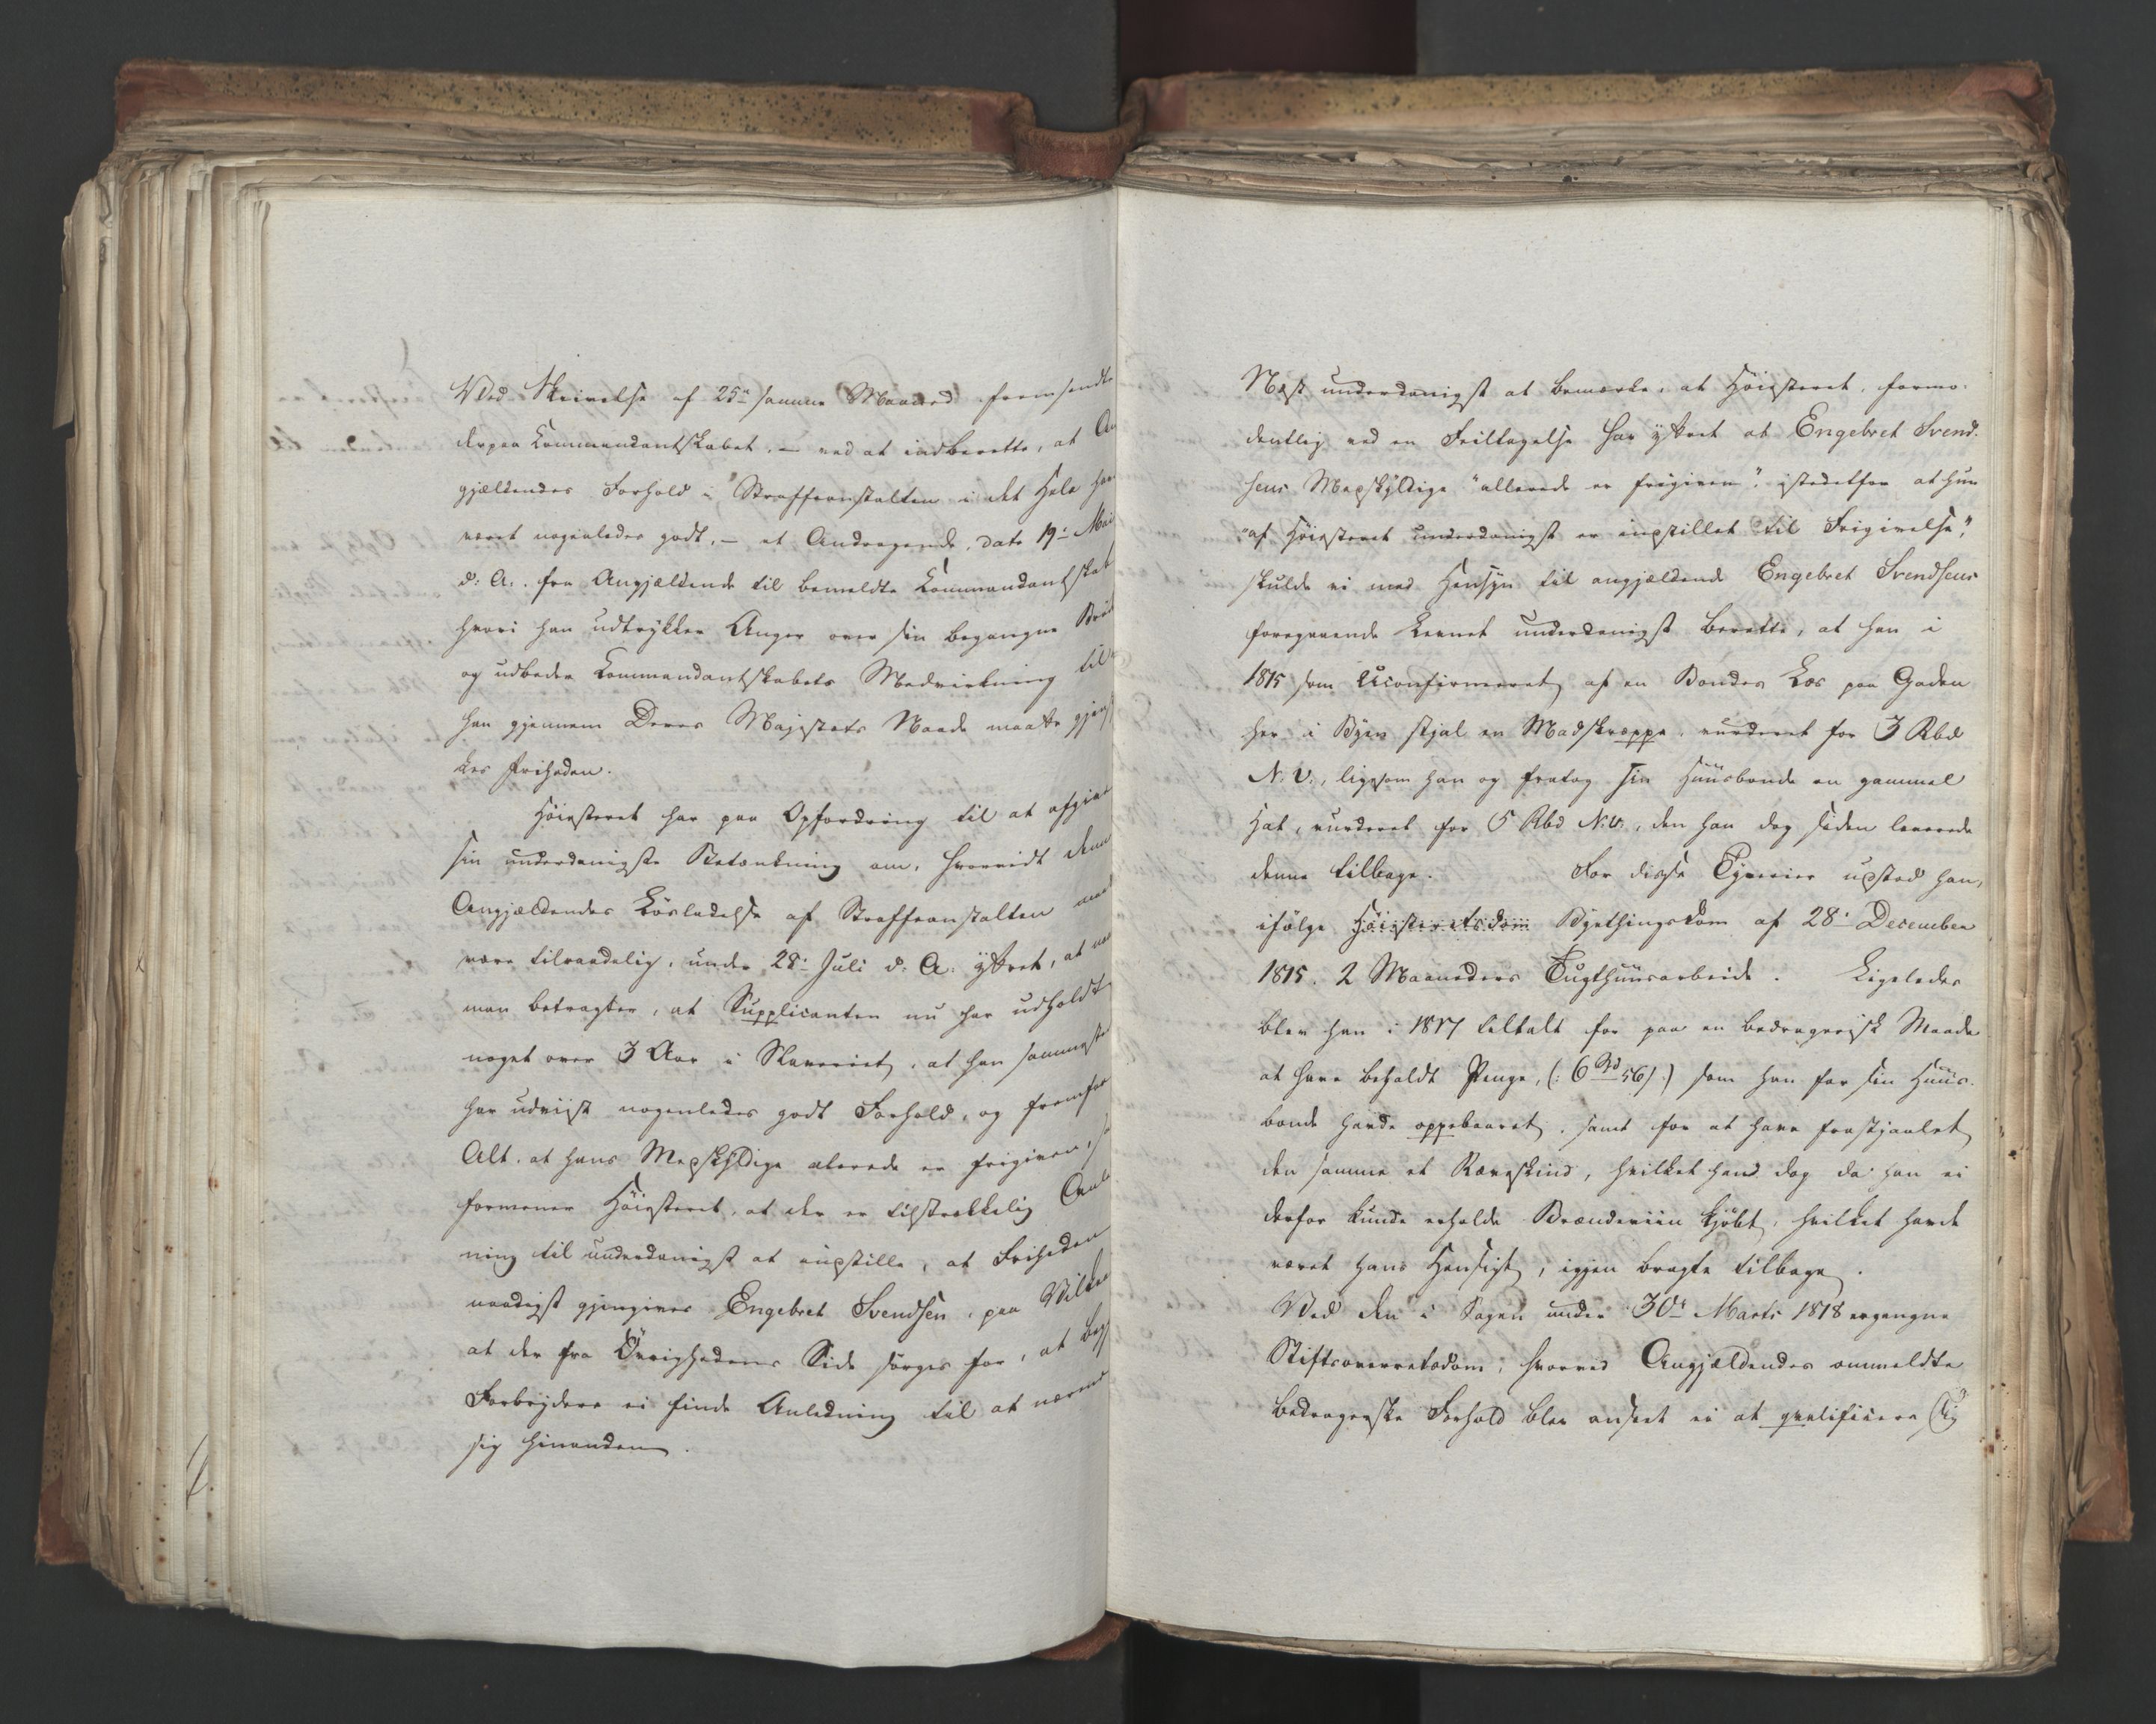 Ved Skrivelse af 25de samme Maaned fremsendte
derpaa Kommandantskabet, – ved at indberette, at An
gjældendes Forhold i Straffeanstalten i det Hele har
været nogenledes godt, – et Andragende, dat. 19de Mai
d: A:. fra Angjældende til bemeldte Kommandantskab
hvori han udtrykker Anger over sin begangne Brøde
og udbeder Kommandantskabets Medvirkning til
han gjennem Deres Majestæts Naade maatte gjens
kes Friheden.
Höiesteret har paa Opfordring til at afgive
sin underdanigste Betænkning om, hvorvidt denne
Angjældendes Lösladelse af Straffeanstalten maatte
være tilraadelig, under 28de Juli d. A: yttret, at naar
man betragter, at Supplicanten nu har udholdt
noget over 3 Aar i Slaveriet, at han sammesteds
har udviist nogenledes godt Forhold, og fremfor
Alt, at hans Medskyldige alerede er frigiven, saa
formener Höiesteret, at der er tilstrækkelig Anled
ning til underdanigst at indstille, at Friheden
naadigst gjengives Engebret Svendsen, paa Vilkaar
at der fra Övrighedens Side sörges for, at begge
Forbrydere ei finde Anledning til at nærme
sig hinanden.
Næst underdanigst at bemærke, at Höiesteret, formo-
dentlig ved en Feiltagelse har yttret at Engebret Svend-
sens Medskyldige "allerede er frigiven", istedetfor at hun
"af Höiesteret underdanigst er indstillet til Frigivelse",
skulde vi med Hensyn til angjældende Engebret Svendsens
foregaaende Levnet underdanigst berette, at han i
1815 som Uconfirmeret af en Bondes Læs paa Gaden
her i Byen stjal en Madskreppe, vurderet for 3 Rbd
N. V., ligesom han og fratog sin Huusbonde en gammel
Hat, vurderet for 5 Rbd N: V:, den han dog siden leverede
denne tilbage. For disse Tyverier udstod han,
ifölge Höiesteretsdom Byethingsdom af 28de December
1815. 2 Maaneders Tugthuusarbeide. Ligeledes
blev han i 1817 tiltalt for paa en bedragerisk Maade
at have beholdt Penge, (: 6 Rbd 56 s :) som han for sin Huus-
bonde havde oppebaaret, samt for at have frastjaalet
den samme et Rævskind, hvilket han dog da han ei
derfor kunde erholde Brændeviin kjöbt, hvilket havde
været hans Hensigt, igjen bragte tilbage.
Ved den i Sagen under 30te Marts 1818 ergangne
Stiftsoverretsdom, hvorved Angjældendes ommeldte
bedragerske Forhold blev anseet ei at qvalificere sig